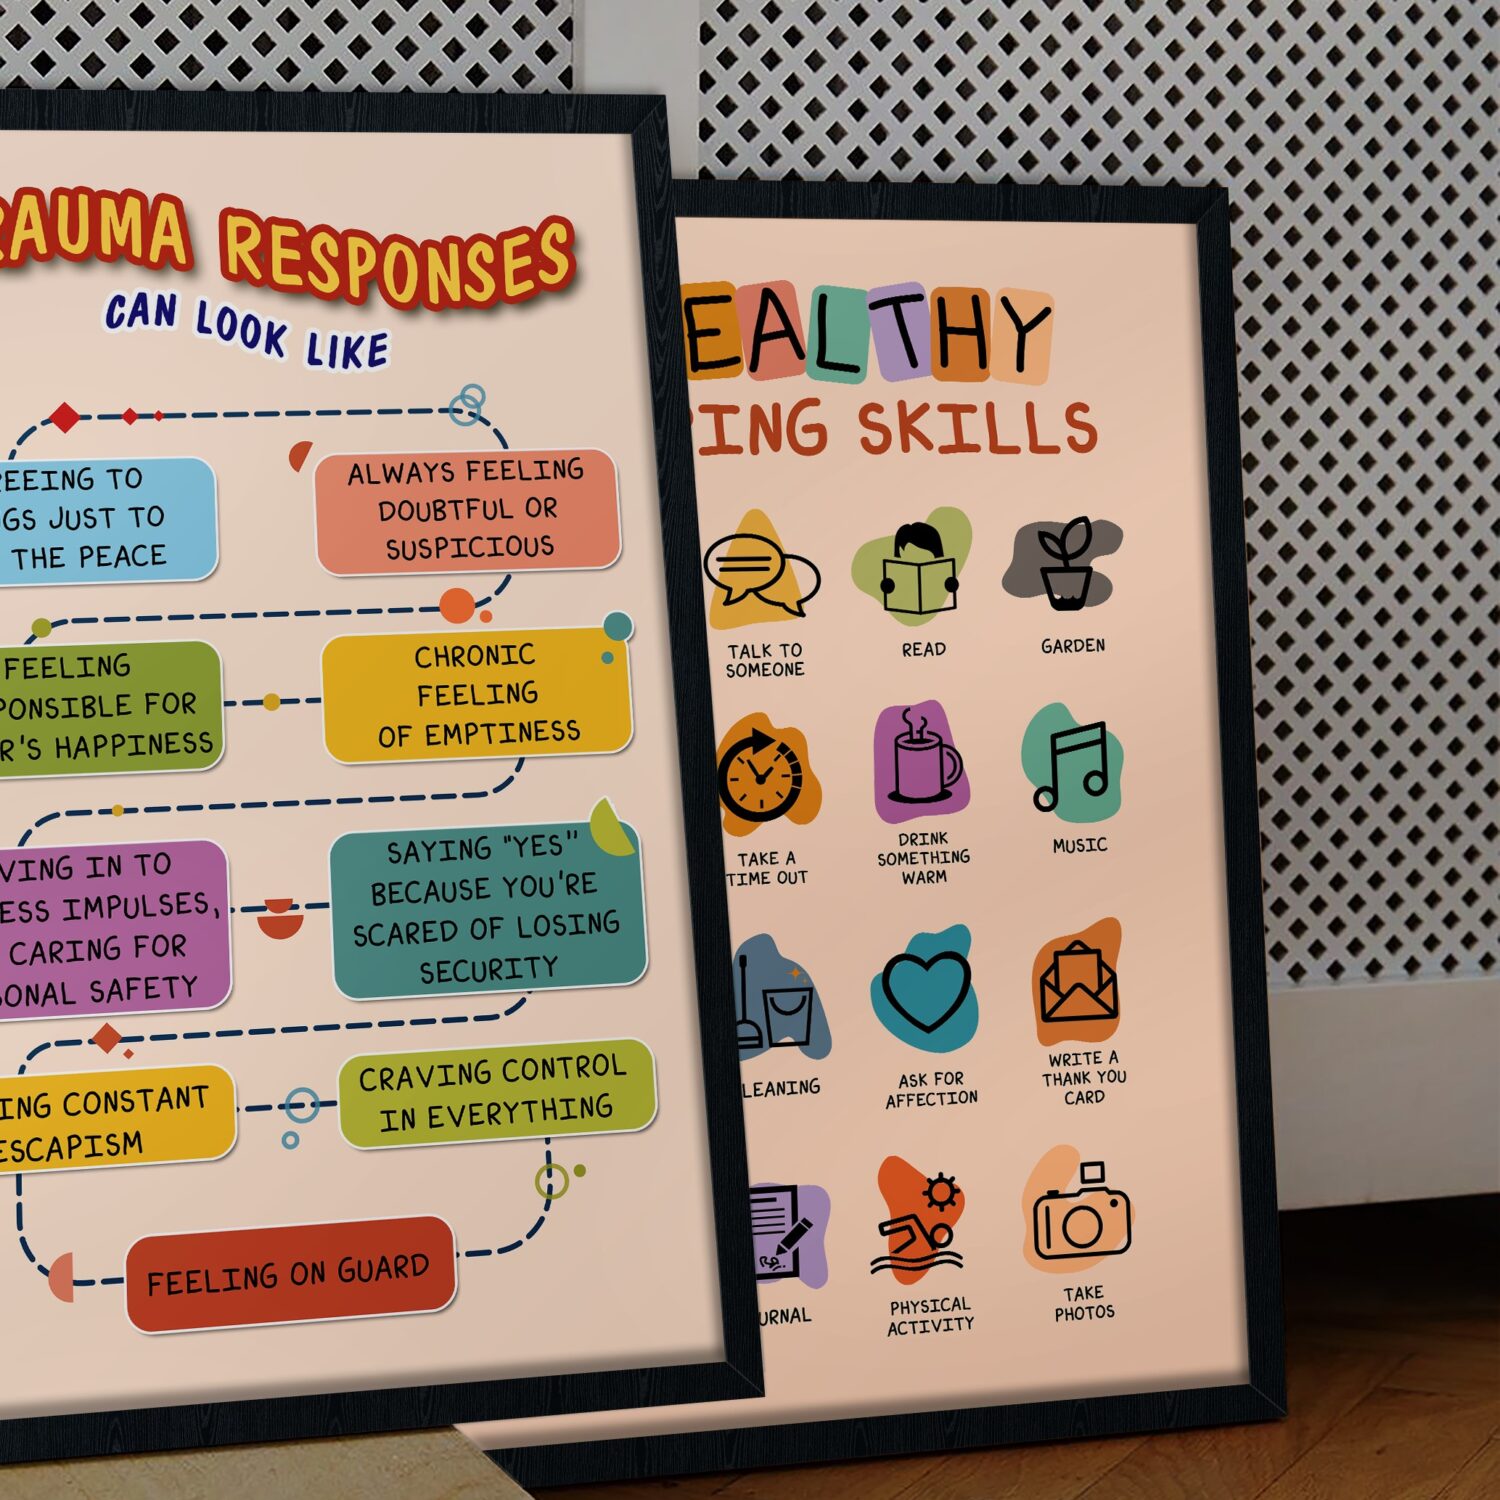 RAUMA RESPONSES
CAN LOOK LIKE
REEING TO
GS JUST TO
THE PEACE
ALWAYS FEELING
DOUBTFUL OR
SUSPICIOUS
FEELING
PONSIBLE FOR
R'S HAPPINESS
CHRONIC
FEELING
OF EMPTINESS
VING IN TO
ESS IMPULSES,
CARING FOR
SONAL SAFETY
SAYING "YES"
BECAUSE YOU'RE
SCARED OF LOSING
SECURITY
ING CONSTANT
ESCAPISM
CRAVING CONTROL
IN EVERYTHING
FEELING ON GUARD
EALTHY
ING SKILLS
TALK TO
SOMEONE
READ
GARDEN
TAKE A
TIME OUT
DRINK
SOMETHING
WARM
MUSIC
LEANING
ASK FOR
AFFECTION
WRITE A
THANK YOU
CARD
URNAL
PHYSICAL
ACTIVITY
TAKE
PHOTOS